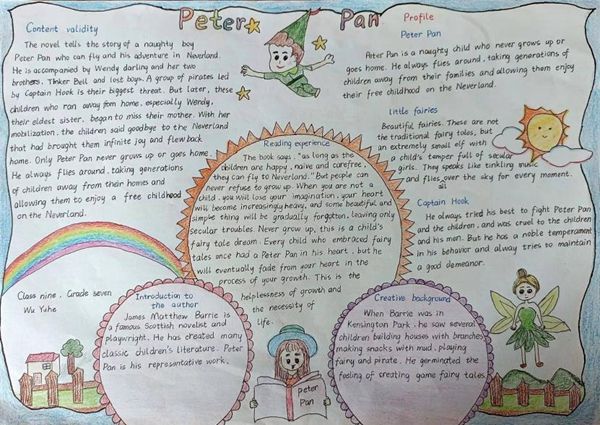 Peter Pan
Content validity
The novel tells the story of a naughty boy
Peter Pan who can fly and his adventure in Neverland.
He is accompanied by Wendy darling and her two
brothers, Tinker Bell and lost boys. A group of pirates led
by Captain Hook is their biggest threat. But later, these
children who ran away from home, especially Wendy,
their eldest sister, began to miss their mother. With her
mobilization, the children said goodbye to the Neverland
that had brought them infinite joy and flew back
home. Only Peter Pan never grows up or goes home.
He always flies around, taking generations
of children away from their homes and
allowing them to enjoy a free childhood
on the Neverland.
Profile
Peter Pan
Peter Pan is a naughty child who never grows up or
goes home. He always flies around, taking generations of
children away from their families and allowing them enjoy
their free childhood on the Neverland.
little fairies
Beautiful fairies. These are not
the traditional fairy tales, but
an extremely small elf with
a child's temper full of secular
girls. They speaks like tinkling music
and flies over the sky for every moment.
all
Captain Hook
He always tried his best to fight Peter Pan
and the children, and was cruel to the children
and his men. But he has a noble temperament
in his behavior and alway tries to maintain
a good demeanor.
Reading experience
The book says, "as long as the
children are happy, naive and carefree,
they can fly to Neverland." But people can
never refuse to grow up. When you are not a
child, you will love your imagination, your heart
will become increasingly heavy, and some beautiful and
simple thing will be gradually forgotten, leaving only
secular troubles. Never grow up, this is a child's
fairy tale dream. Every child who embraced fairy
tales once had a Peter Pan in his heart, but he
will eventually fade from your heart in the
process of your growth. This is the
helplessness of growth and
the necessity of
life.
Class nine, Grade seven
Wu Yuhe
Introduction to
the author
James Matthew Barrie is
a famous Scottish novelist and
playwright. He has created many
classic children's literature. Peter
Pan is his representative work.
peter
Pan
Creative background
When Barrie was in
Kensington Park, he saw several
children building houses with branches,
making snacks with mud, playing
fairy and pirate. He germinated the
feeling of creating game fairy tales